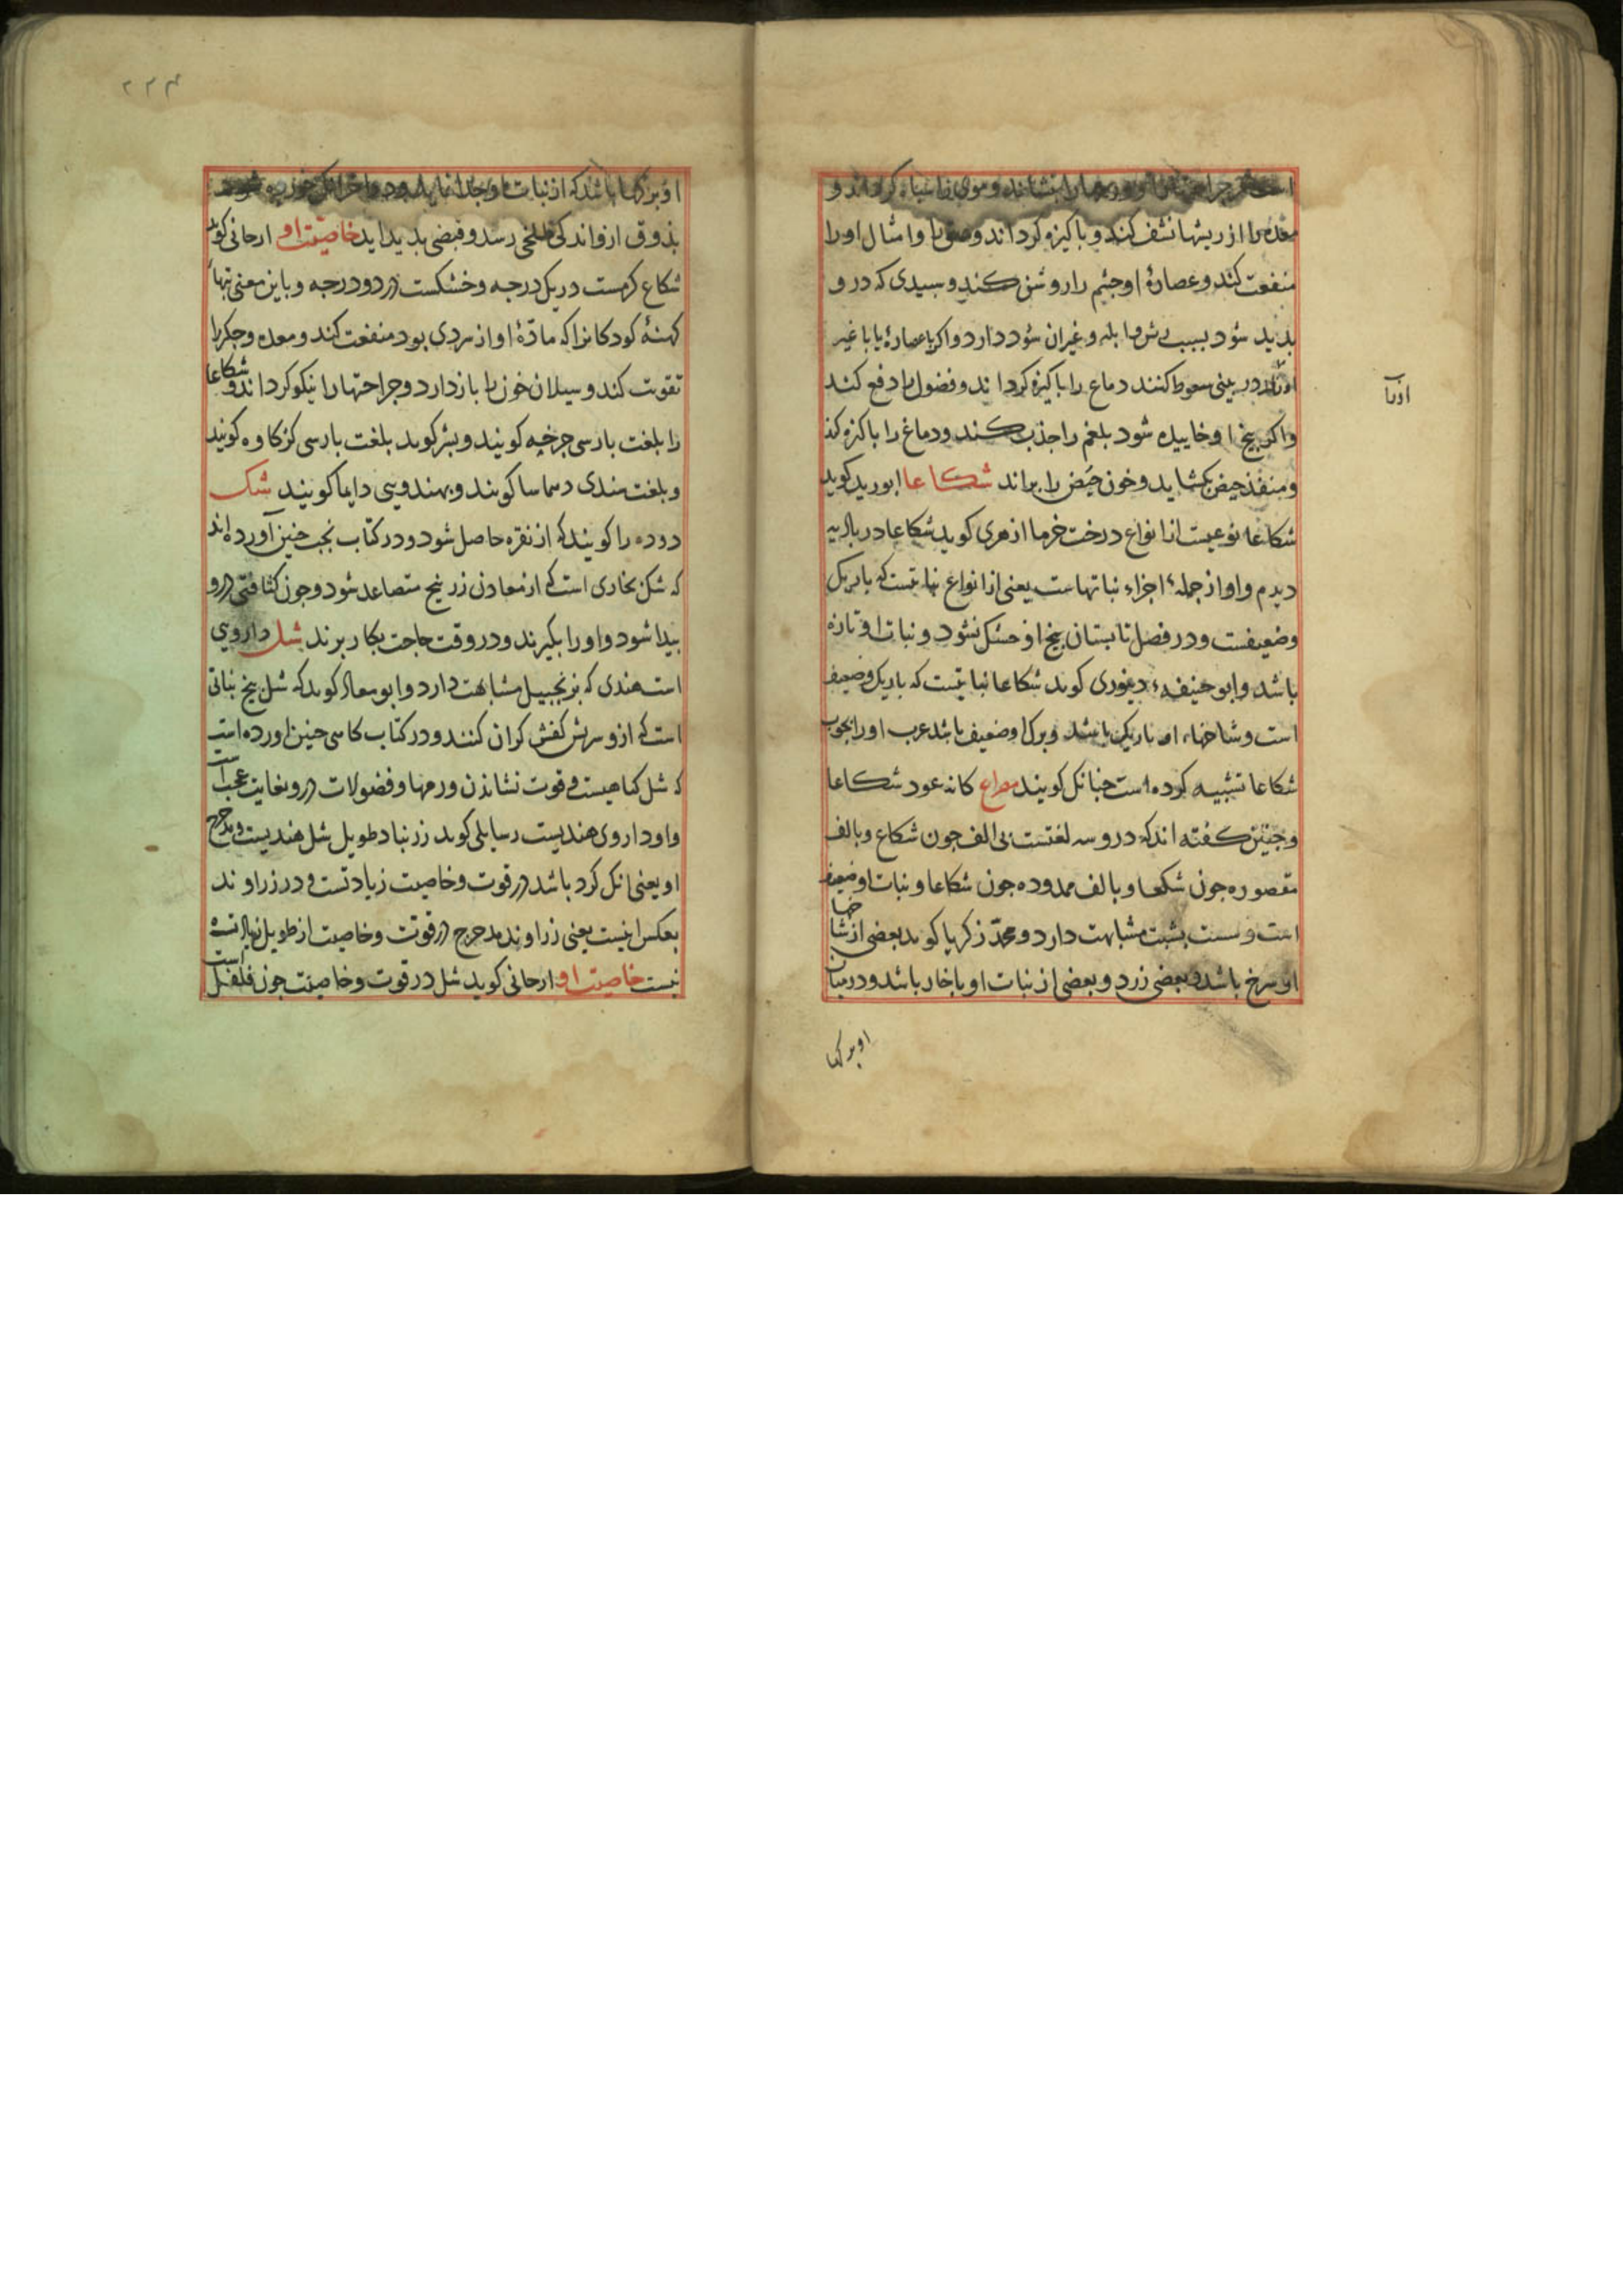 معده را از ریشها نشف کند و باکیزه کرداند و صرع را و امثال او را
منفعت کند و عصارۀ او جشم را روشن کند و سبیدی که در و
بدید شود بسبب ریش و ابله و غیران سود دارد و اکر با عصارۀ یا با غیر
در بینی سعوط کنند دماع را باکیزه کرداند و فضول را دفع کند
ادرا
و اکر بیخ او خاییده شود بلغم را جذب کند و دماغ را باکزه کند
و منفذ حیض بکشاید و خون حیض را براند شکاعا ابورید کوید
شکاعا نوعیست از انواع درخت خرما ازهری کوید شکاعا در بادیه
دیدم و او از جمله اجزاء نباتهاست یعنی از انواع نباتیست که باریک
و ضعیفست و در فصل تابستان بیخ او خشک نشود و نبات او تازه
باشد و ابو حنیفه دینوری کوید شکاعا نباتیست که باریک و ضعیف
است و شاخهاء او باریک باشد و برک او ضعیف باشد عرب او را بجوب
شکاعا تشبیه کرده است جنانک کویند مصراع کانه عود شکاعا
و جنین کفته اند که درو سه لغتست بی الف جون شکاع و بالف
مقصوره جون شکعا و بالف ممدوده جون شکاعا و نبات او ضعیف
است و سست بشبت مشابهت دارد و محمد زکریا کوید بعضی از شاخها
او سرخ باشد و بعضی زرد و بعضی از نبات او با خار باشد و در میان
او برکها
۲۲۴
او برکها باشد که از نبات او جدا نباشد
بذوق ازو اندکی تلخی رسد و قبضی بدید اید خاصیت او ارجانی کوید
شکاع کرمست در یک درجه و خشکست در دو درجه و باین معنی تبهاء
کهنۀ کودکانرا که مادّۀ او از سردی بود منفعت کند و معده و جکر را
تقویت کند و سیلان خون را باز دارد و جراحتها را نیکو کرداند و شکاعا
را بلغت بارسی جرخه کویند و بشر کوید بلغت بارسی کزکاوه کویند
و بلغت هندی دسماسا کویند و بهندوسی دایما کویند شک
دوده را کویند که از نقره حاصل شود و در کتاب نخب جنین آورده اند
که شک بخاری است که از معادن زرنیخ متصاعد شود و جون کثافتی درو
بیدا شود و او را بکیرند و در وقت حاجت بکار برند شل داروی
است هندی که بزنجبیل مشابهت دارد و ابو معاذ کوید که شل بیخ نباتی
است که ازو سریش کفش کران کنند و در کتاب کاسی جنین اورده است
که شل کیاهیست و قوت نشاندن ورمها و فضولات درو بغایت عجب است
و او داروی هندیست رسایلی کوید زرنباد طویل شل هندیست و مدحرج
او یعنی انک کرد باشد در قوت و خاصیت زیادتست و در زراوند
بعکس اینست یعنی زراوند مدحرج در قوت و خاصیت از طویل زیادت
نیست خاصیت او ارجانی کوید شل در قوت و خاصیت جون فلفل است